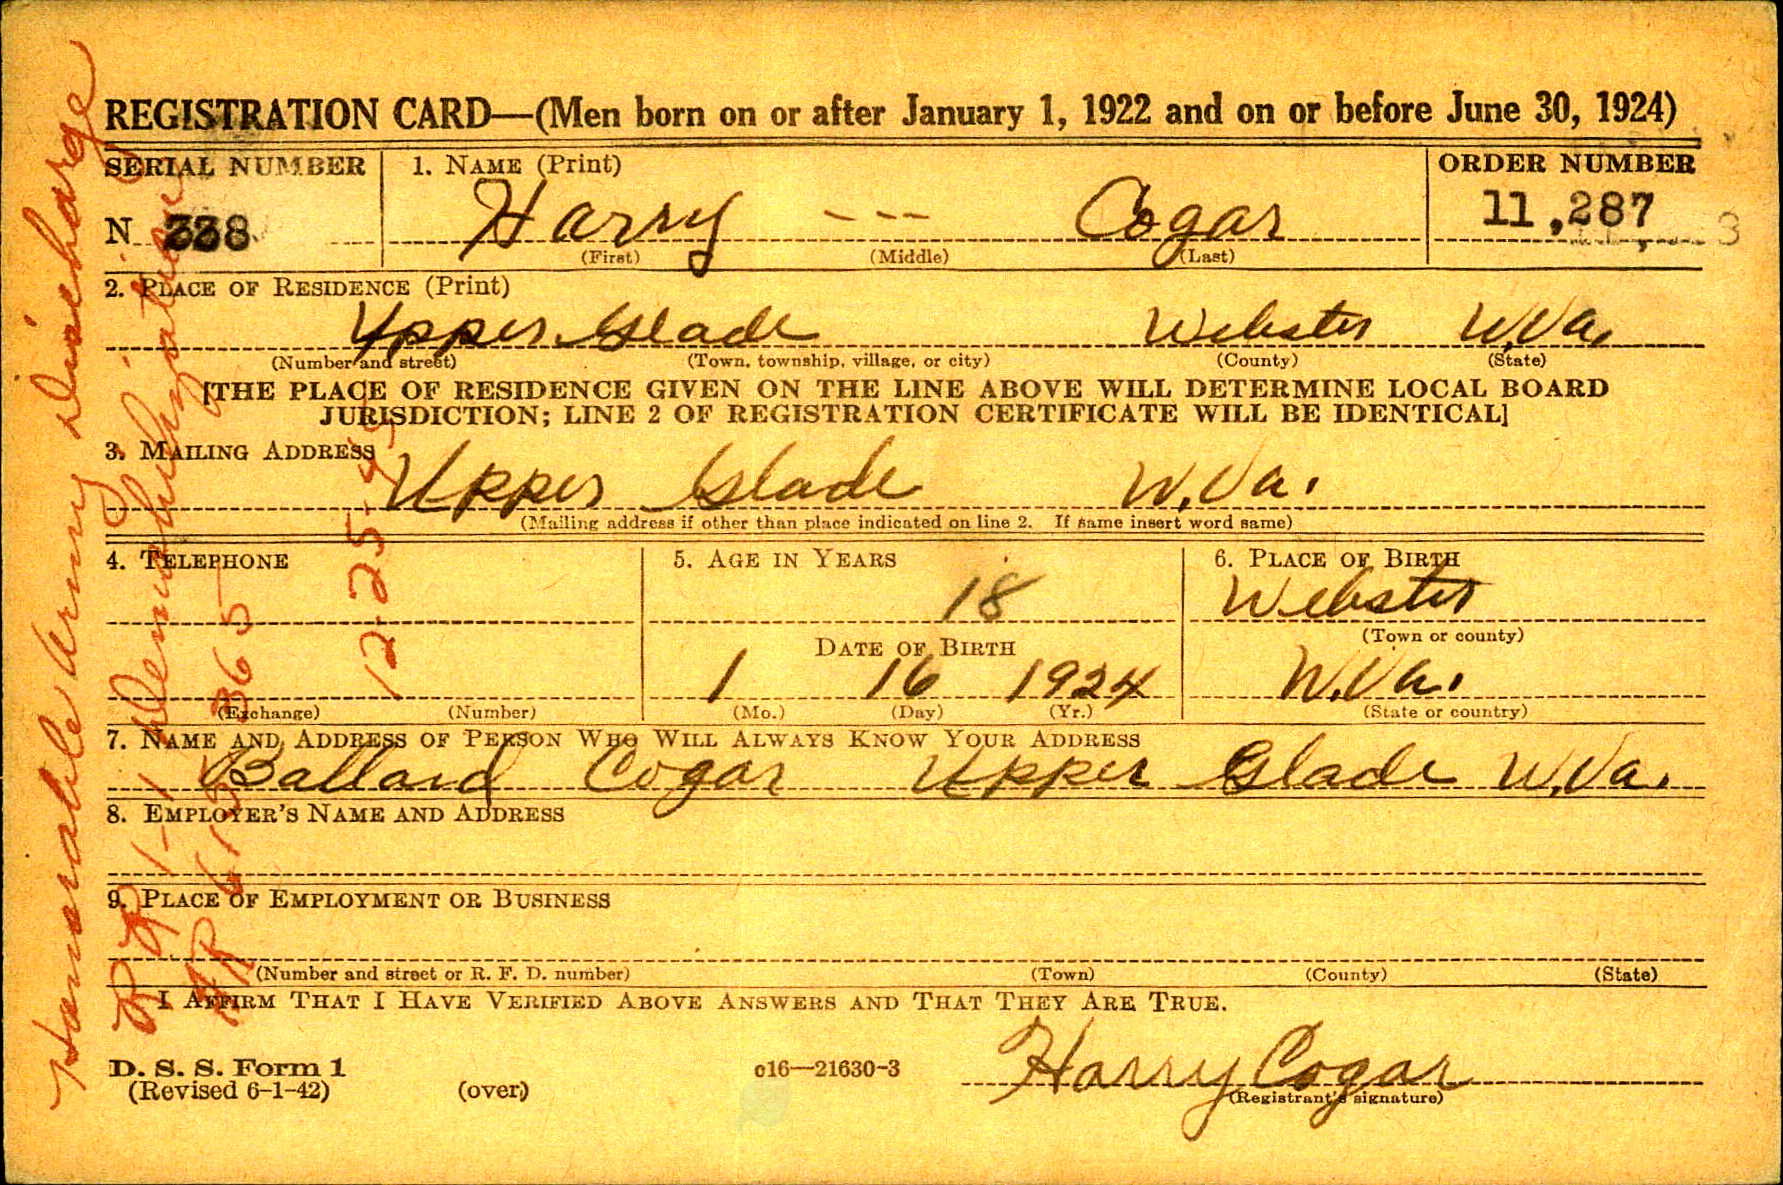 REGISTRATION CARD—(Men born on or after January 1, 1922 and on or before June 30, 1924)
SERIAL NUMBER 1. NAME (Print) ORDER NUMBER
N 338 Harry --- Cogar 11,287
(First) (Middle) (Last)
2. PLACE OF RESIDENCE (Print)
Upper Glade Webster W.Va.
(Number and street) (Town, township, village, or city) (County) (State)
[THE PLACE OF RESIDENCE GIVEN ON THE LINE ABOVE WILL DETERMINE LOCAL BOARD
JURISDICTION; LINE 2 OF REGISTRATION CERTIFICATE WILL BE IDENTICAL]
3. MAILING ADDRESS
Upper Glade W.Va.
(Mailing address if other than place indicated on line 2. If same insert word same)
4. TELEPHONE 5. AGE IN YEARS 6. PLACE OF BIRTH
18 Webster
DATE OF BIRTH (Town or county)
1 16 1924 W.Va.
(Exchange) (Number) (Mo.) (Day) (Yr.) (State or country)
7. NAME AND ADDRESS OF PERSON WHO WILL ALWAYS KNOW YOUR ADDRESS
Ballard Cogar Upper Glade W.Va.
8. EMPLOYER'S NAME AND ADDRESS
9. PLACE OF EMPLOYMENT OR BUSINESS
(Number and street or R. F. D. number) (Town) (County) (State)
I AFFIRM THAT I HAVE VERIFIED ABOVE ANSWERS AND THAT THEY ARE TRUE.
D. S. S. Form 1 c16—21630-3 Harry Cogar
(Revised 6-1-42) (over) (Registrant's signature)
Honorable Army Discharge
RR 1-1 Demobilization
12-25-45